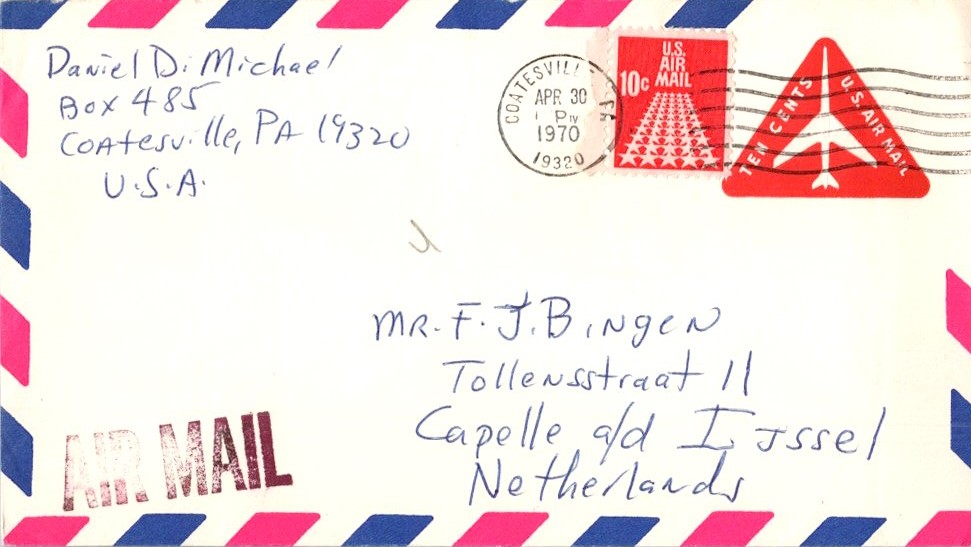 Daniel DiMichael
Box 485
Coatesville, PA 19320
U.S.A.
COATESVILLE PA
APR 30
PM
1970
19320
U.S.
AIR
MAIL
10c
TEN CENTS
U.S. AIR MAIL
MR. F. J. Bingen
Tollensstraat 11
Capelle a/d IJssel
Netherlands
AIR MAIL